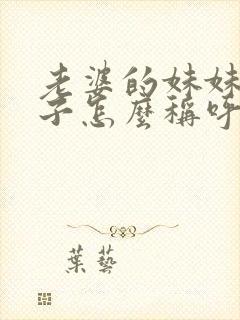 老婆的妹妹
子怎麼稱呼
葉藝